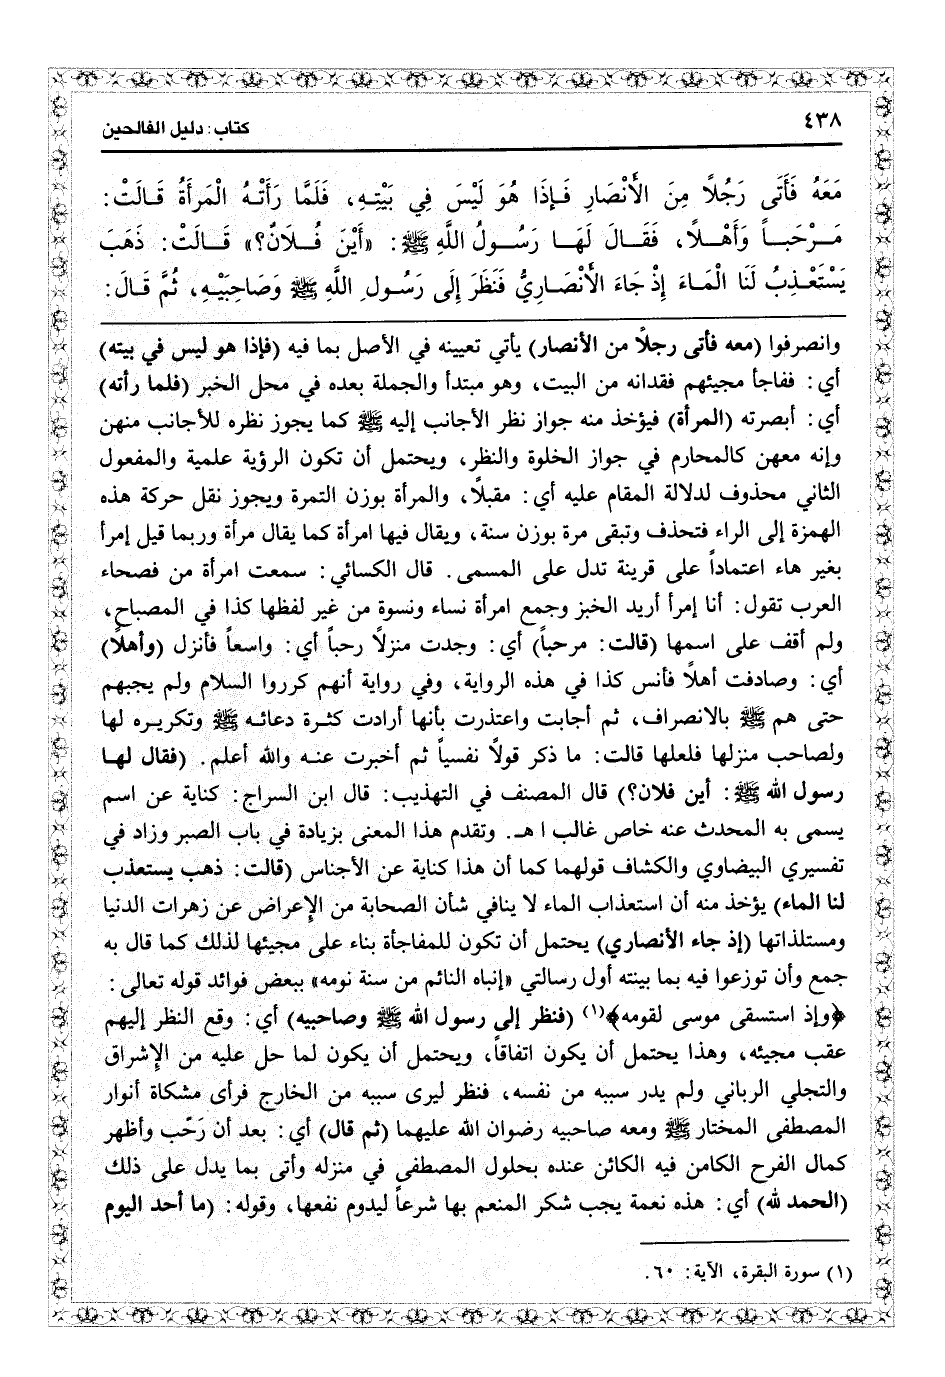 ٤٣٨
كتاب: دليل الفالحين
مَعَهُ فَأَتَى رَجُلاً مِنَ الأَنْصَارِ فَإِذَا هُوَ لَيْسَ فِي بَيْتِهِ، فَلَمَّا رَأَتْهُ الْمَرأَةُ قَالَتْ:
مَرْحَباً وَأَهْلاً، فَقَالَ لَهَا رَسُولُ اللَّهِ ﷺ: «أَيْنَ فُلَانٌ؟» قَالَتْ: ذَهَبَ
يَسْتَعْذِبُ لَنَا الْمَاءَ إِذْ جَاءَ الأَنْصَارِيُّ فَنَظَرَ إِلَى رَسُولِ اللَّهِ ﷺ وَصَاحِبَيْهِ، ثُمَّ قَالَ:
وانصرفوا (معه فأتى رجلاً من الأنصار) يأتي تعيينه في الأصل بما فيه (فإذا هو ليس في بيته)
أي: ففاجأ مجيئهم فقدانه من البيت، وهو مبتدأ والجملة بعده في محل الخبر (فلما رأته)
أي: أبصرته (المرأة) فيؤخذ منه جواز نظر الأجانب إليه ﷺ كما يجوز نظره للأجانب منهن
وإنه معهن كالمحارم في جواز الخلوة والنظر، ويحتمل أن تكون الرؤية علمية والمفعول
الثاني محذوف لدلالة المقام عليه أي: مقبلاً، والمرأة بوزن التمرة ويجوز نقل حركة هذه
الهمزة إلى الراء فتحذف وتبقى مرة بوزن سنة، ويقال فيها امرأة كما يقال مرأة وربما قيل إمرأ
بغير هاء اعتماداً على قرينة تدل على المسمى. قال الكسائي: سمعت امرأة من فصحاء
العرب تقول: أنا إمرأ أريد الخبز وجمع امرأة نساء ونسوة من غير لفظها كذا في المصباح،
ولم أقف على اسمها (قالت: مرحباً) أي: وجدت منزلاً رحباً أي: واسعاً فأنزل (وأهلاً)
أي: وصادفت أهلاً فأنس كذا في هذه الرواية، وفي رواية أنهم كرروا السلام ولم يجبهم
حتى هم ﷺ بالانصراف، ثم أجابت واعتذرت بأنها أرادت كثرة دعائه ﷺ وتكريره لها
ولصاحب منزلها فلعلها قالت: ما ذكر قولاً نفسياً ثم أخبرت عنه والله أعلم. (فقال لها
رسول الله ﷺ: أين فلان؟) قال المصنف في التهذيب: قال ابن السراج: كناية عن اسم
يسمى به المحدث عنه خاص غالب ا هـ. وتقدم هذا المعنى بزيادة في باب الصبر وزاد في
تفسيري البيضاوي والكشاف قولهما كما أن هذا كناية عن الأجناس (قالت: ذهب يستعذب
لنا الماء) يؤخذ منه أن استعذاب الماء لا ينافي شأن الصحابة من الإعراض عن زهرات الدنيا
ومستلذاتها (إذ جاء الأنصاري) يحتمل أن تكون للمفاجأة بناء على مجيئها لذلك كما قال به
جمع وأن توزعوا فيه بما بينته أول رسالتي «إنباه النائم من سنة نومه» ببعض فوائد قوله تعالى:
﴿وإذ استسقى موسى لقومه﴾(١) (فنظر إلى رسول الله ﷺ وصاحبيه) أي: وقع النظر إليهم
عقب مجيئه، وهذا يحتمل أن يكون اتفاقاً، ويحتمل أن يكون لما حل عليه من الإشراق
والتجلي الرباني ولم يدر سببه من نفسه، فنظر ليرى سببه من الخارج فرأى مشكاة أنوار
المصطفى المختار ﷺ ومعه صاحبيه رضوان الله عليهما (ثم قال) أي: بعد أن رَحّب وأظهر
كمال الفرح الكامن فيه الكائن عنده بحلول المصطفى في منزله وأتى بما يدل على ذلك
(الحمد لله) أي: هذه نعمة يجب شكر المنعم بها شرعاً ليدوم نفعها، وقوله: (ما أحد اليوم
(١) سورة البقرة، الآية: ٦٠.